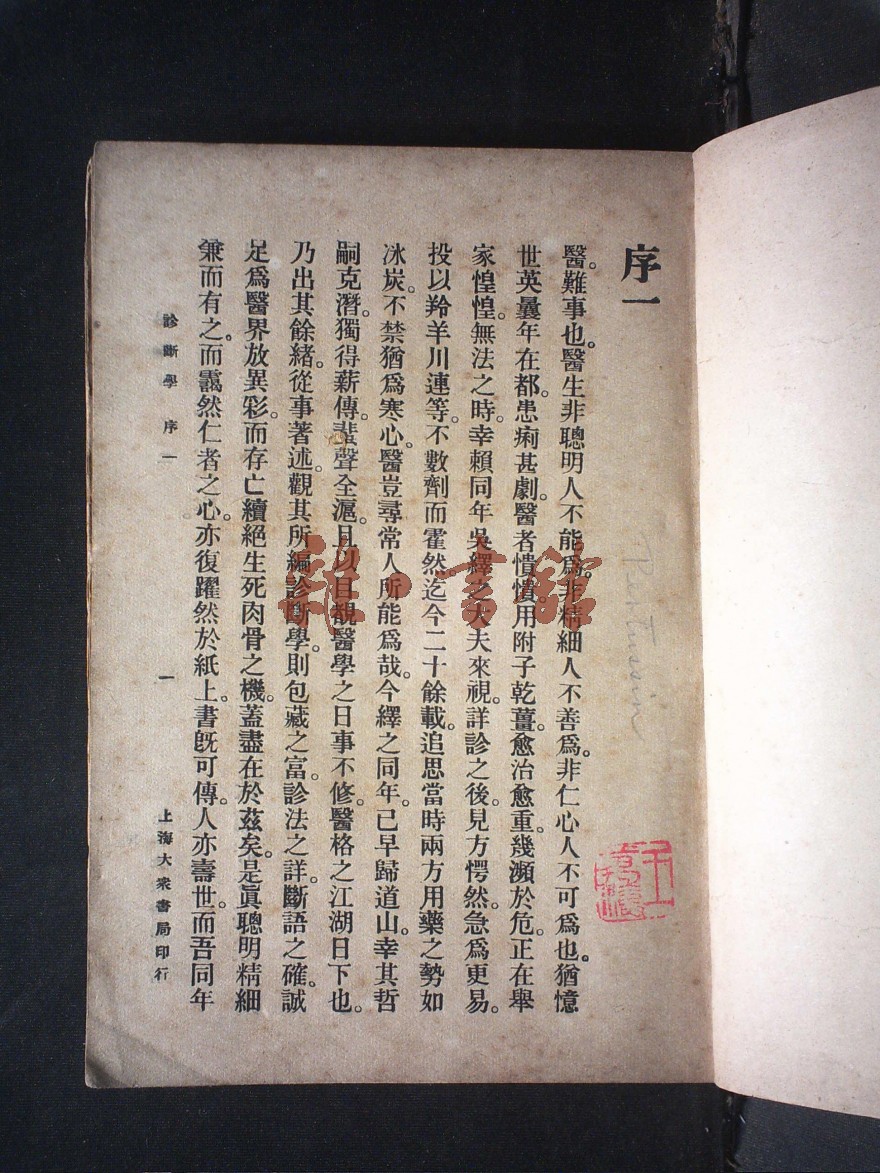 序一
醫。難事也。醫生非聰明人不能爲。非精細人不善爲。非仁心人不可爲也。猶憶
世英曩年在都。患痢甚劇。醫者憒憒。用附子乾薑。愈治愈重。幾瀕於危。正在舉
家惶惶。無法之時。幸賴同年吳繹之大夫來視。詳診之後。見方愕然。急爲更易。
投以羚羊川連等。不數劑而霍然。迄今二十餘載。追思當時兩方用藥之勢如
冰炭。不禁猶爲寒心。醫豈尋常人所能爲哉。今繹之同年。已早歸道山。幸其哲
嗣克潛。獨得薪傳。蜚聲全滬。且以目覩醫學之日事不修。醫格之江湖日下也。
乃出其餘緒。從事著述。觀其所編診斷學。則包藏之富。診法之詳。斷語之確。誠
足爲醫界放異彩。而存亡續絕生死肉骨之機。蓋盡在於茲矣。是眞聰明精細
兼而有之。而靄然仁者之心。亦復躍然於紙上。書旣可傳。人亦壽世。而吾同年
診斷學 序一
一
上海大衆書局印行